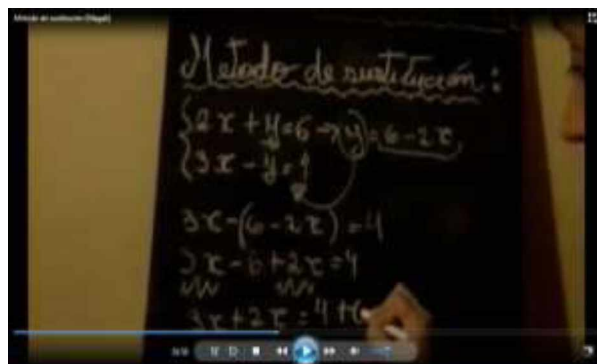 Metodo de sustitución:
2x + y = 6 → y = 6 - 2x
3x - y = 4
3x - (6 - 2x) = 4
3x - 6 + 2x = 4
3x + 2x = 4 + 6